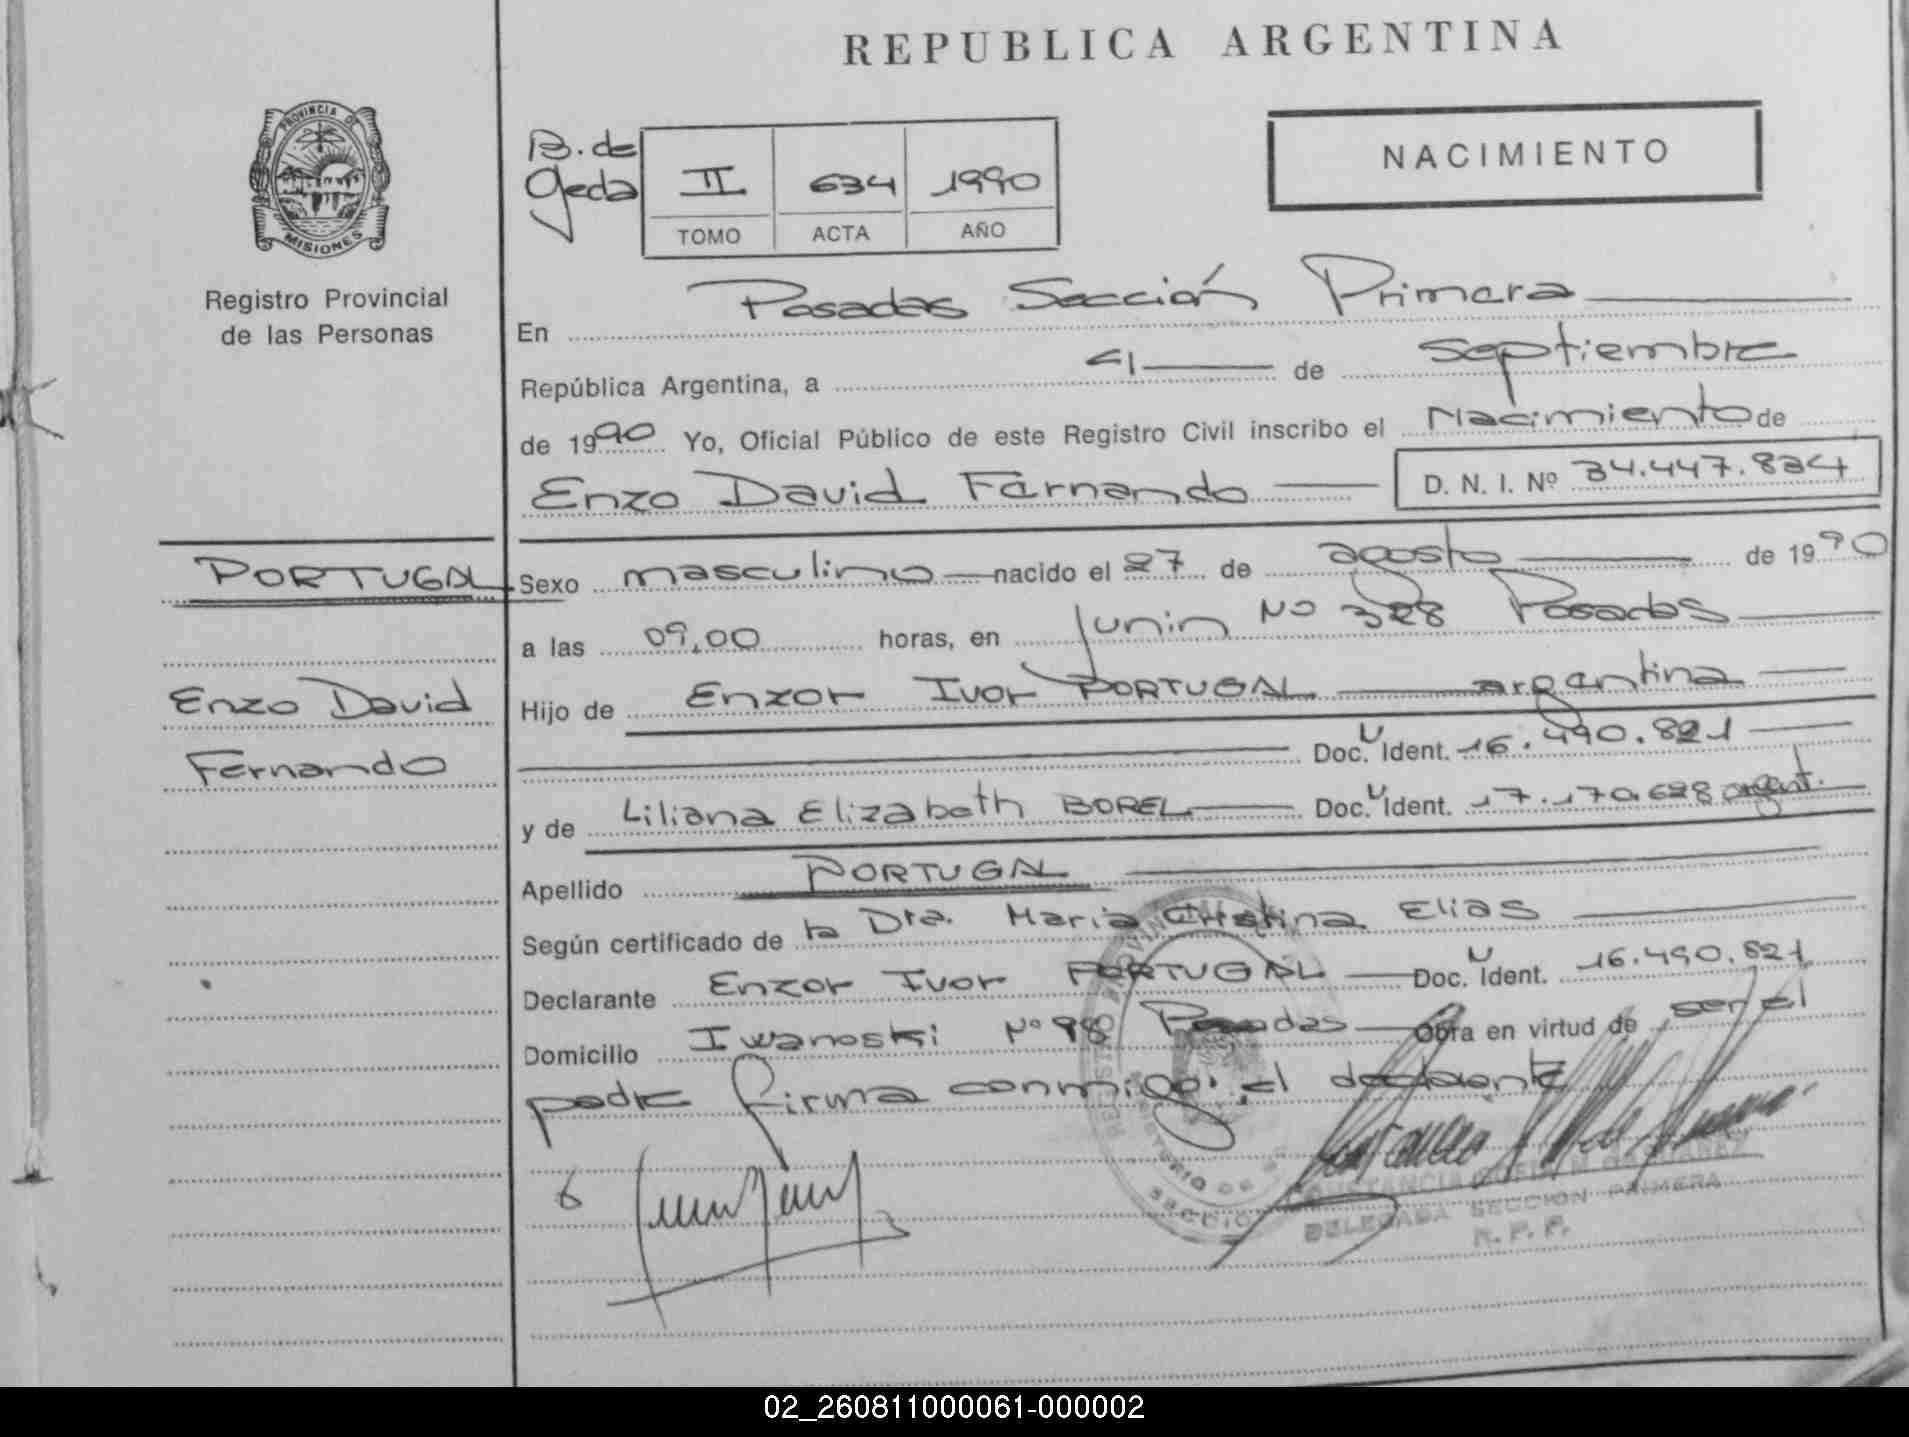 REPUBLICA ARGENTINA
PROVINCIA DE
MISIONES
Registro Provincial
de las Personas
B. de
II 634 1990
TOMO ACTA AÑO
NACIMIENTO
En Posadas Sección Primera
República Argentina, a 4 de septiembre
de 1990 Yo, Oficial Público de este Registro Civil inscribo el Nacimiento de
Enzo David Fernando D. N. I. Nº 34.447.834
PORTUGAL
Enzo David
Fernando
Sexo masculino nacido el 27 de agosto de 1990
a las 09,00 horas, en Junin Nº 328 Posadas
Hijo de Enzor Ivor PORTUGAL argentina
Doc. U Ident. 16.490.821
y de Liliana Elizabeth BOREL Doc. U Ident. 17.170.628 argent.
Apellido PORTUGAL
Según certificado de la Dra. Maria Cristina Elias
Declarante Enzor Ivor PORTUGAL Doc. U Ident. 16.490.821
Domicilio Iwanoski Nº 98 Posadas Obra en virtud de ser el
padre firma conmigo: el declarante
CONSTANCIA
DELEGADA SECCION PRIMERA
R. P. P.
02_260811000061-000002